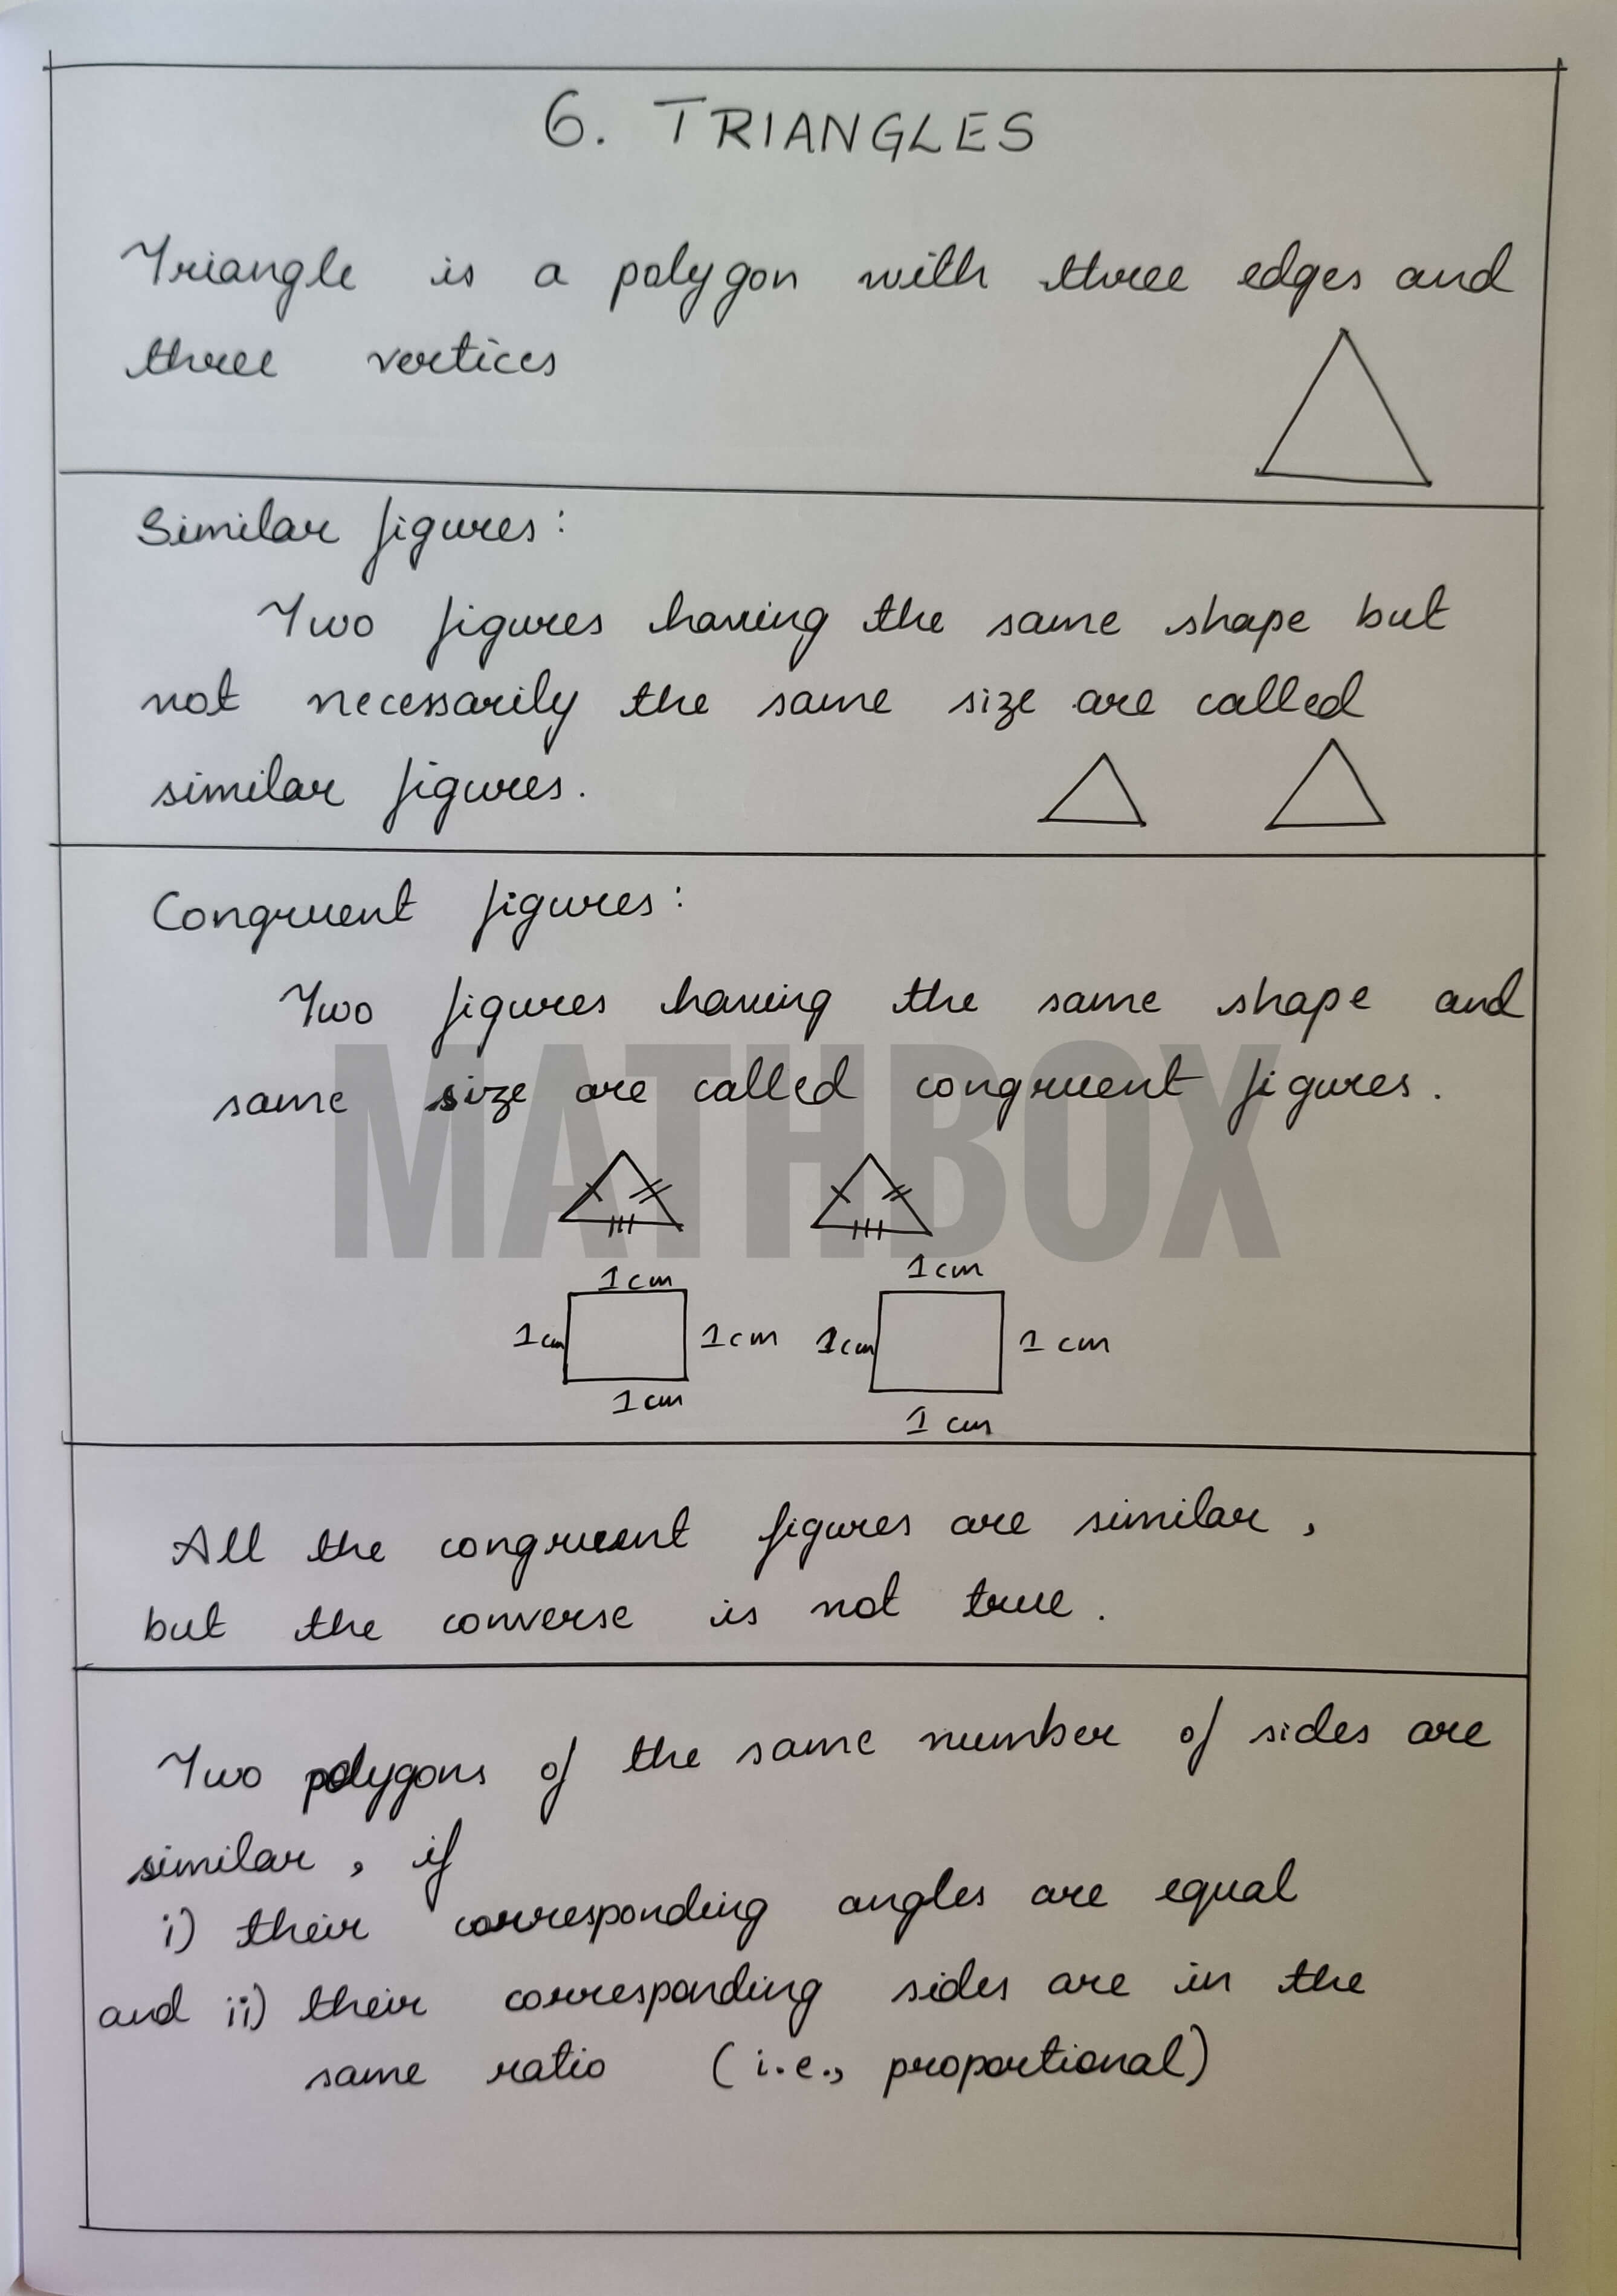 6. TRIANGLES
Triangle is a polygon with three edges and
three vertices
Similar figures:
Two figures having the same shape but
not necessarily the same size are called
similar figures.
Congruent figures:
Two figures having the same shape and
same size are called congruent figures.
MATHBOX
1cm 1cm
1cm 1cm 1cm 1 cm
1cm 1 cm
All the congruent figures are similar,
but the converse is not true.
Two polygons of the same number of sides are
similar, if
i) their corresponding angles are equal
and ii) their corresponding sides are in the
same ratio (i.e., proportional)